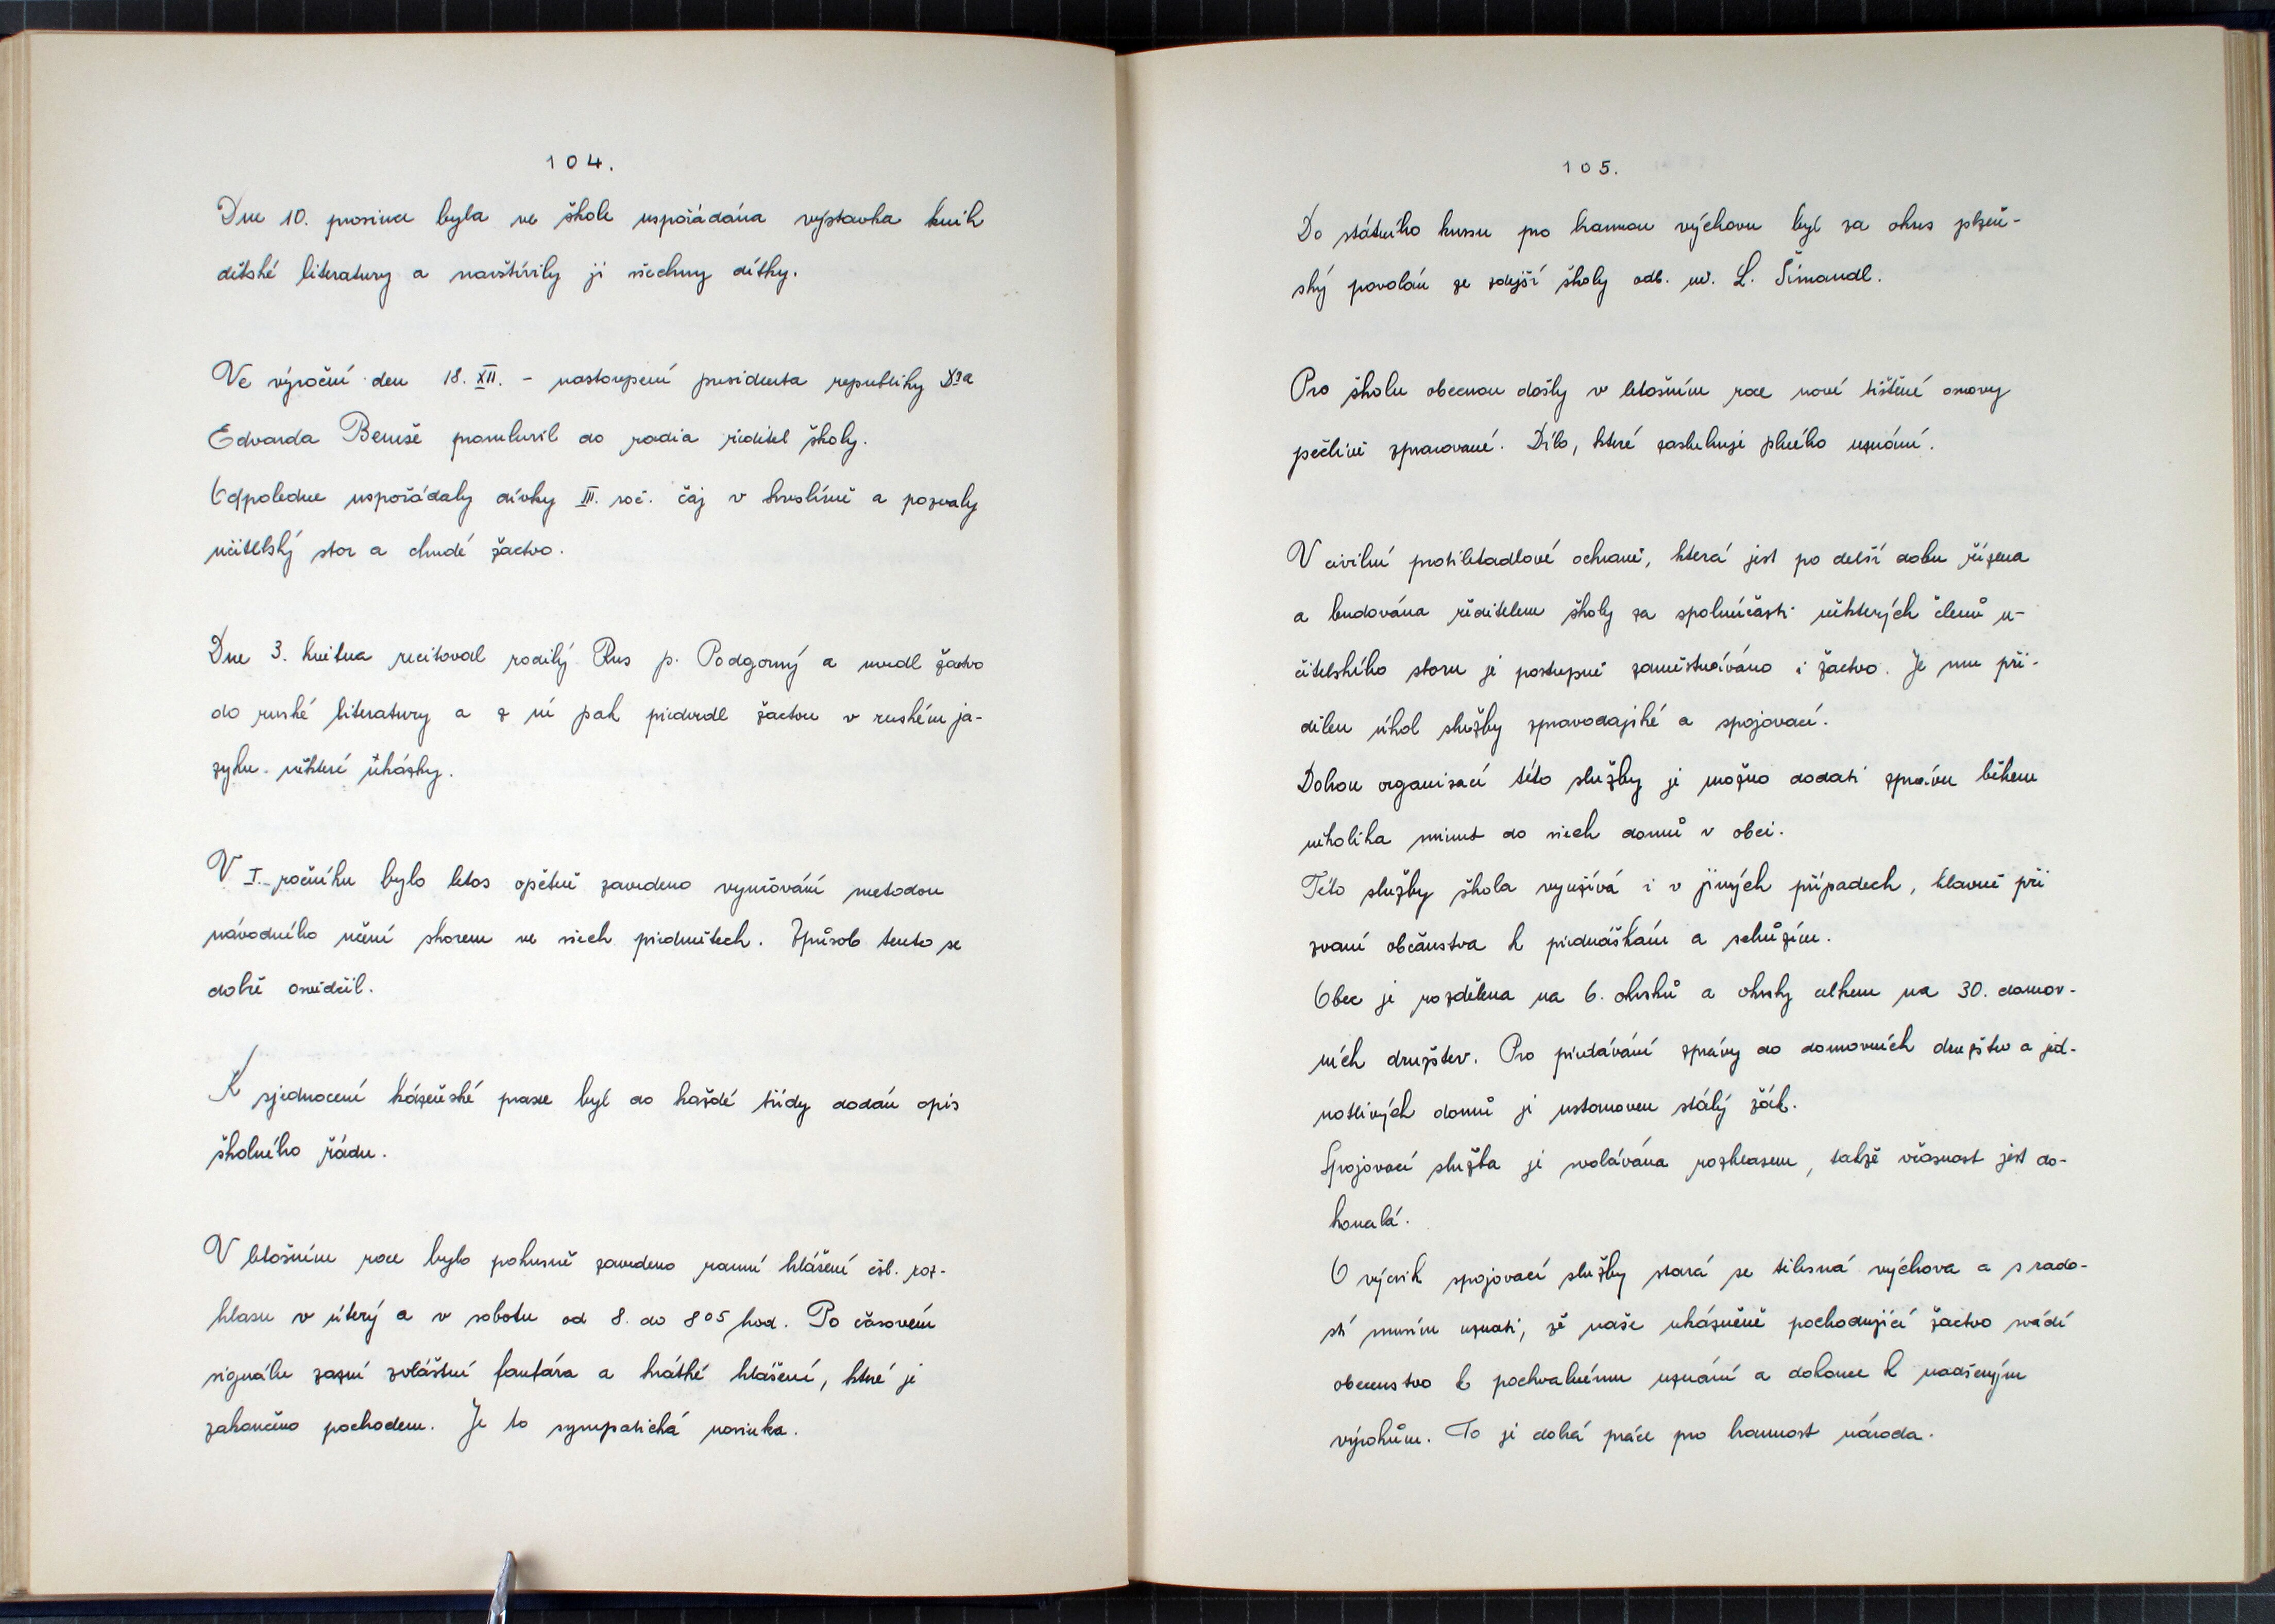 104.
Dne 10. prosince byla ve škole uspořádána výstavka knih
dětské literatury a navštívily ji všechny dítky.
Ve výroční den 18. XII. - nastoupení presidenta republiky Dra
Edvarda Beneše promluvil do radia ředitel školy.
Odpoledne uspořádaly dívky III. roč. čaj v kreslírně a pozvaly
učitelský sbor a chudé žactvo.
Dne 3. května recitoval rodilý Rus p. Podgorný a uvedl žactvo
do ruské literatury a z ní pak předvedl žactvu v ruském ja-
zyku některé ukázky.
V I. ročníku bylo letos opětně zavedeno vyučování metodou
návodného učení skorem ve všech předmětech. Způsob tento se
dobře osvědčil.
K sjednocení kázeňské praxe byl do každé třídy dodán opis
školního řádu.
V letošním roce bylo pokusně zavedeno ranní hlášení čsl. roz-
hlasu v úterý a v sobotu od 8. do 8 05 hod. Po časovém
signálu zazní zvláštní fanfára a krátké hlášení, které je
zakončeno pochodem. Je to sympatická novinka.
105.
Do státního kursu pro brannou výchovu byl za okres plzeň-
ský povolán ze zdejší školy odb. uč. L. Šimandl.
Pro školu obecnou došly v letošním roce nové tištěné osnovy
pečlivě zpracované. Dílo, které zasluhuje plného uznání.
V civilní protiletadlové ochraně, která jest po delší dobu řízena
a budována ředitelem školy za spoluúčasti některých členů u-
čitelského sboru je postupně zaměstnáváno i žactvo. Je mu při-
dělen úkol služby zpravodajské a spojovací.
Dobrou organisací této služby je možno dodati zprávu během
několika minut do všech domů v obci.
Této služby škola využívá i v jiných případech, hlavně při
zvaní občanstva k přednáškám a schůzím.
Obec je rozdělena na 6. okrsků a okrsky celkem na 30. domov-
ních družstev. Pro předávání zprávy do domovních družstev a jed-
notlivých domů je ustanoven stálý žák.
Spojovací služba je svolávána rozhlasem, takže včasnost jest do-
konalá.
O výcvik spojovací služby stará se tělesná výchova a s rado-
stí musím uznati, že naše ukázněně pochodující žactvo svádí
obecenstvo k pochvalnému uznání a dokonce k nadšeným
výrokům. To je dobrá práce pro brannost národa.